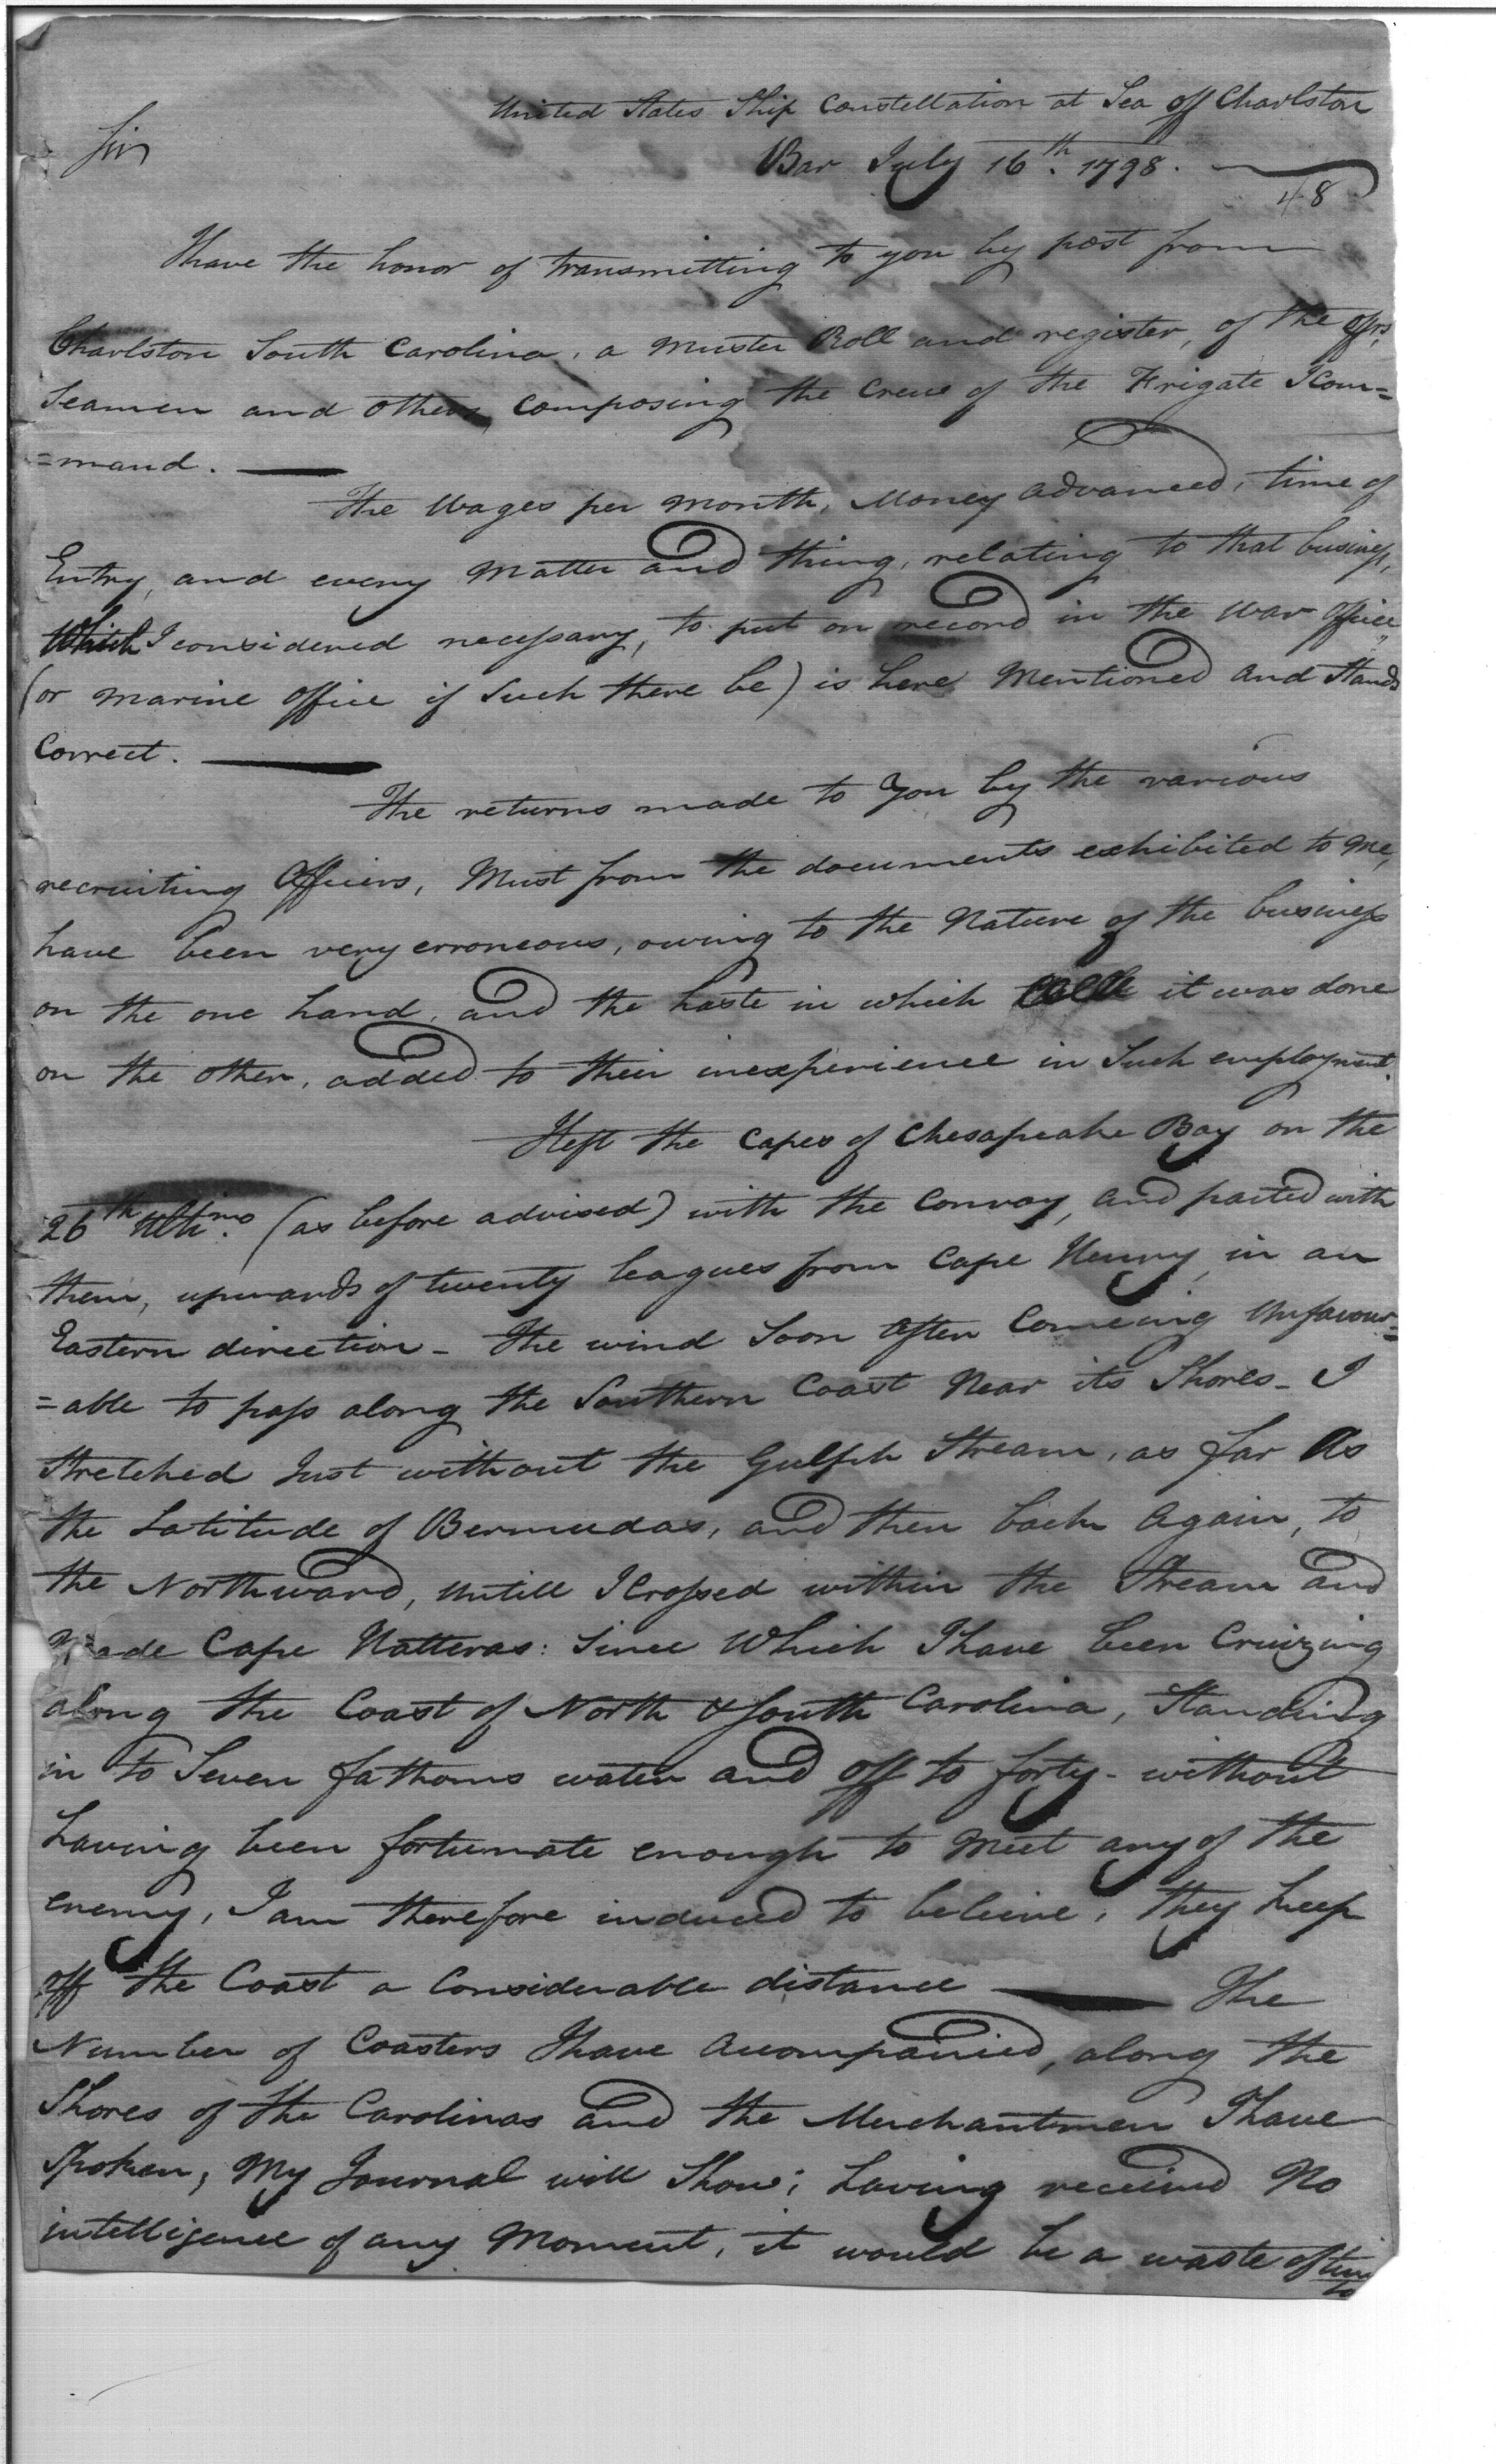 United States Ship Constellation at Sea off Charlston
Sir
Bar July 16th. 1798.
48
I have the honor of transmitting to you by post from
Charlston South Carolina, a Muster Roll and register, of the offrs,
Seamen and others, composing the Crew of the Frigate I Com=
=mand.
The Wages per Month, Money advanced, time of
Entry, and every Matter and thing, relating to that business,
Which I considered necessary, to put on record in the War Office,
(or Marine Office if Such there be) is here Mentioned and Stands
Correct.
The returns made to You by the various
recruiting Officers, Must from the documents exhibited to Me,
have been very erroneous, owing to the Nature of the business
on the one hand, and the haste in which it was done
on the other, added to their inexperience in Such employment.
I left the Capes of Chesapeake Bay on the
26th Ultimo. (as before advised) with the Convoy, and parted with
them, upwards of twenty leagues from Cape Henry, in an
Eastern direction - The wind Soon After Comeing Unfavour=
=able to pass along the Southern Coast Near its Shores - I
Stretched Just without the Gulph Stream, as far As
the Latitude of Bermudas, and then back Again, to
the Northward, Untill I Crossed within the Stream and
Made Cape Hatteras: Since Which I have been Cruizing
along the Coast of North & South Carolina, Standing
in to Seven fathoms water and off to forty - without
having been fortunate enough to Meet any of the
enemy, I am therefore induced to beleive, they keep
off the Coast a Considerable distance The
Number of Coasters I have Accompanied, along the
Shores of the Carolinas and the Merchantmen I have
Spoken, My Journal will Show; having received No
intelligence of any Moment, it would be a waste of time
to